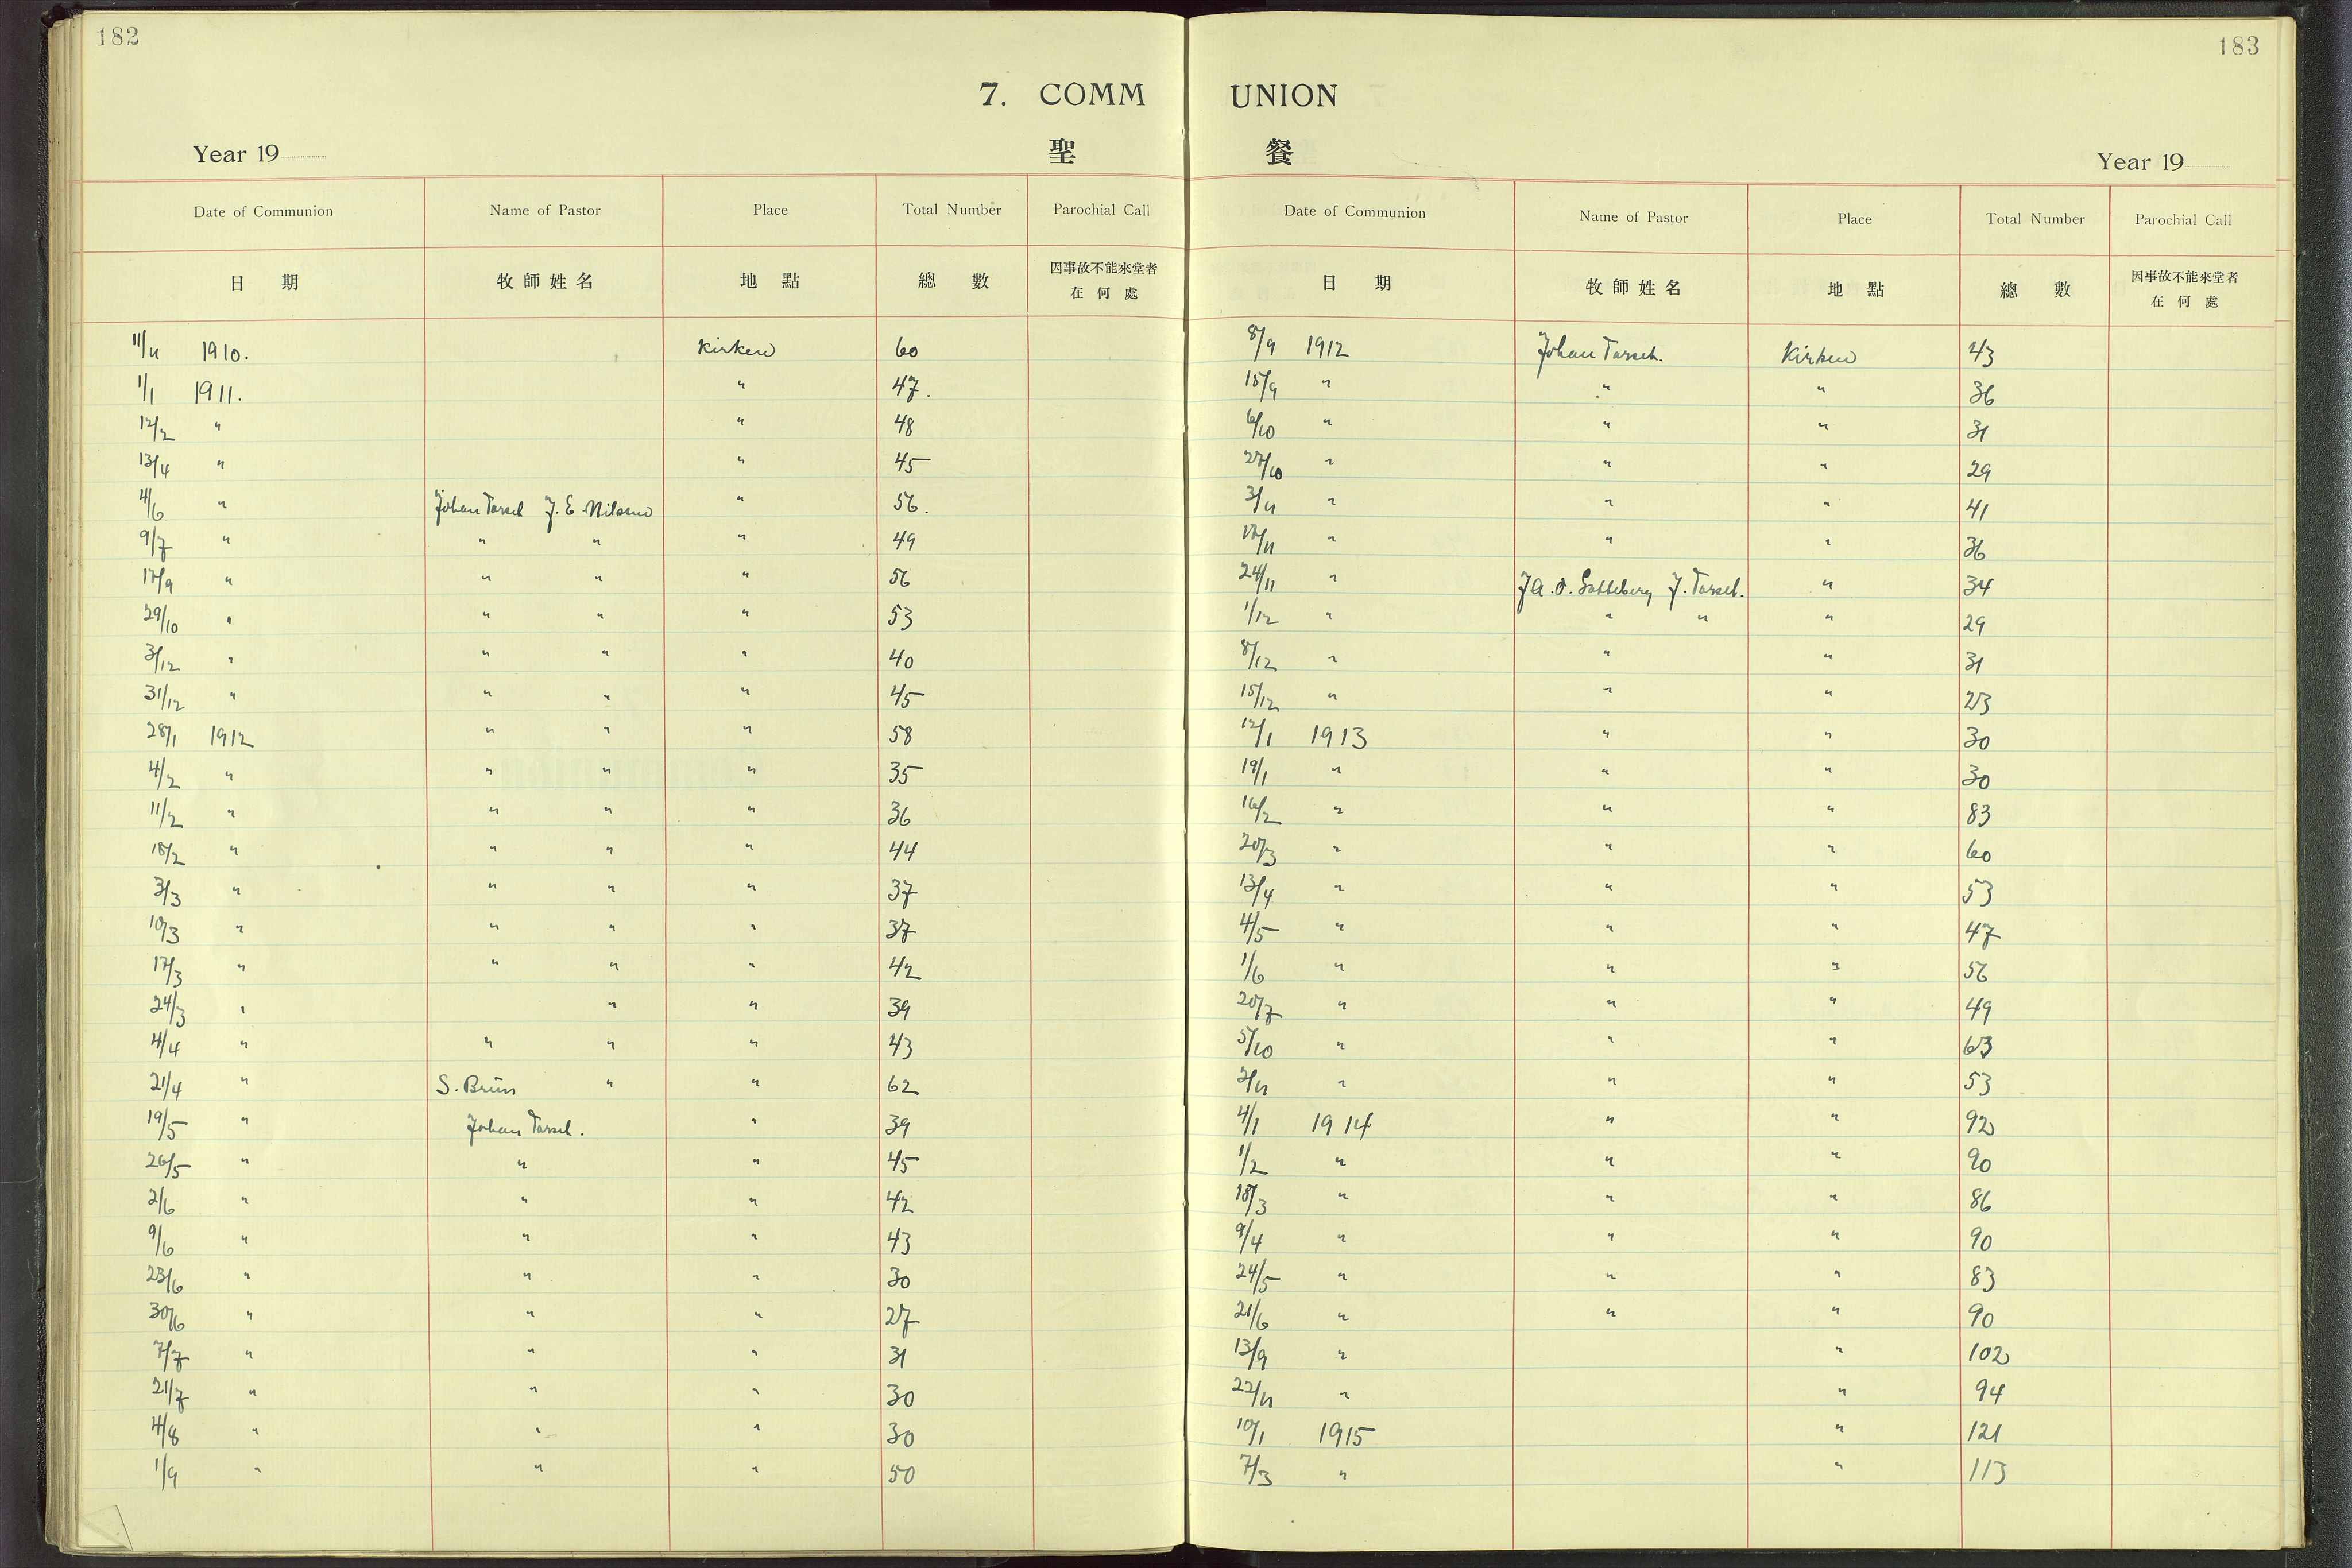 182
7. COMM
聖
Year 19
Date of Communion Name of Pastor Place Total Number Parochial Call
日期 牧師姓名 地點 總數 因事故不能來堂者
在何處
11/11 1910. Kirken 60
1/1 1911. " 47.
12/2 " " 48
13/4 " " 45
4/6 " Johan J. E. Nilssen " 56.
9/7 " " " " 49
17/9 " " " " 56
29/10 " " " " 53
3/12 " " " " 40
31/12 " " " " 45
28/1 1912 " " " 58
4/2 " " " " 35
11/2 " " " " 36
18/2 " " " " 44
3/3 " " " " 37
10/3 " " " " 37
17/3 " " " " 42
24/3 " " " 39
4/4 " " " " 43
21/4 " S. Brün " " 62
19/5 " Johan " 39
26/5 " " " 45
2/6 " " " 42
9/6 " " " 43
23/6 " " " 30
30/6 " " " 27
7/7 " " " 31
21/7 " " " 30
4/8 " " " 30
1/9 " " " 50
183
UNION
餐
Year 19
Date of Communion Name of Pastor Place Total Number Parochial Call
日期 牧師姓名 地點 總數 因事故不能來堂者
在何處
8/9 1912 Johan Kirken 43
15/9 " " " 36
6/10 " " " 31
27/10 " " " 29
3/11 " " " 41
17/11 " " " 36
24/11 " J. " 34
1/12 " " " " 29
8/12 " " " 31
15/12 " " " 23
12/1 1913 " " 30
19/1 " " " 30
16/2 " " " 83
20/3 " " " 60
13/4 " " " 53
4/5 " " " 47
1/6 " " " 56
20/7 " " " 49
5/10 " " " 63
2/11 " " " 53
4/1 1914 " " 92
1/2 " " " 90
18/3 " " " 86
9/4 " " " 90
24/5 " " " 83
21/6 " " " 90
13/9 " " 102
22/11 " " 94
10/1 1915 " 121
7/3 " " 113